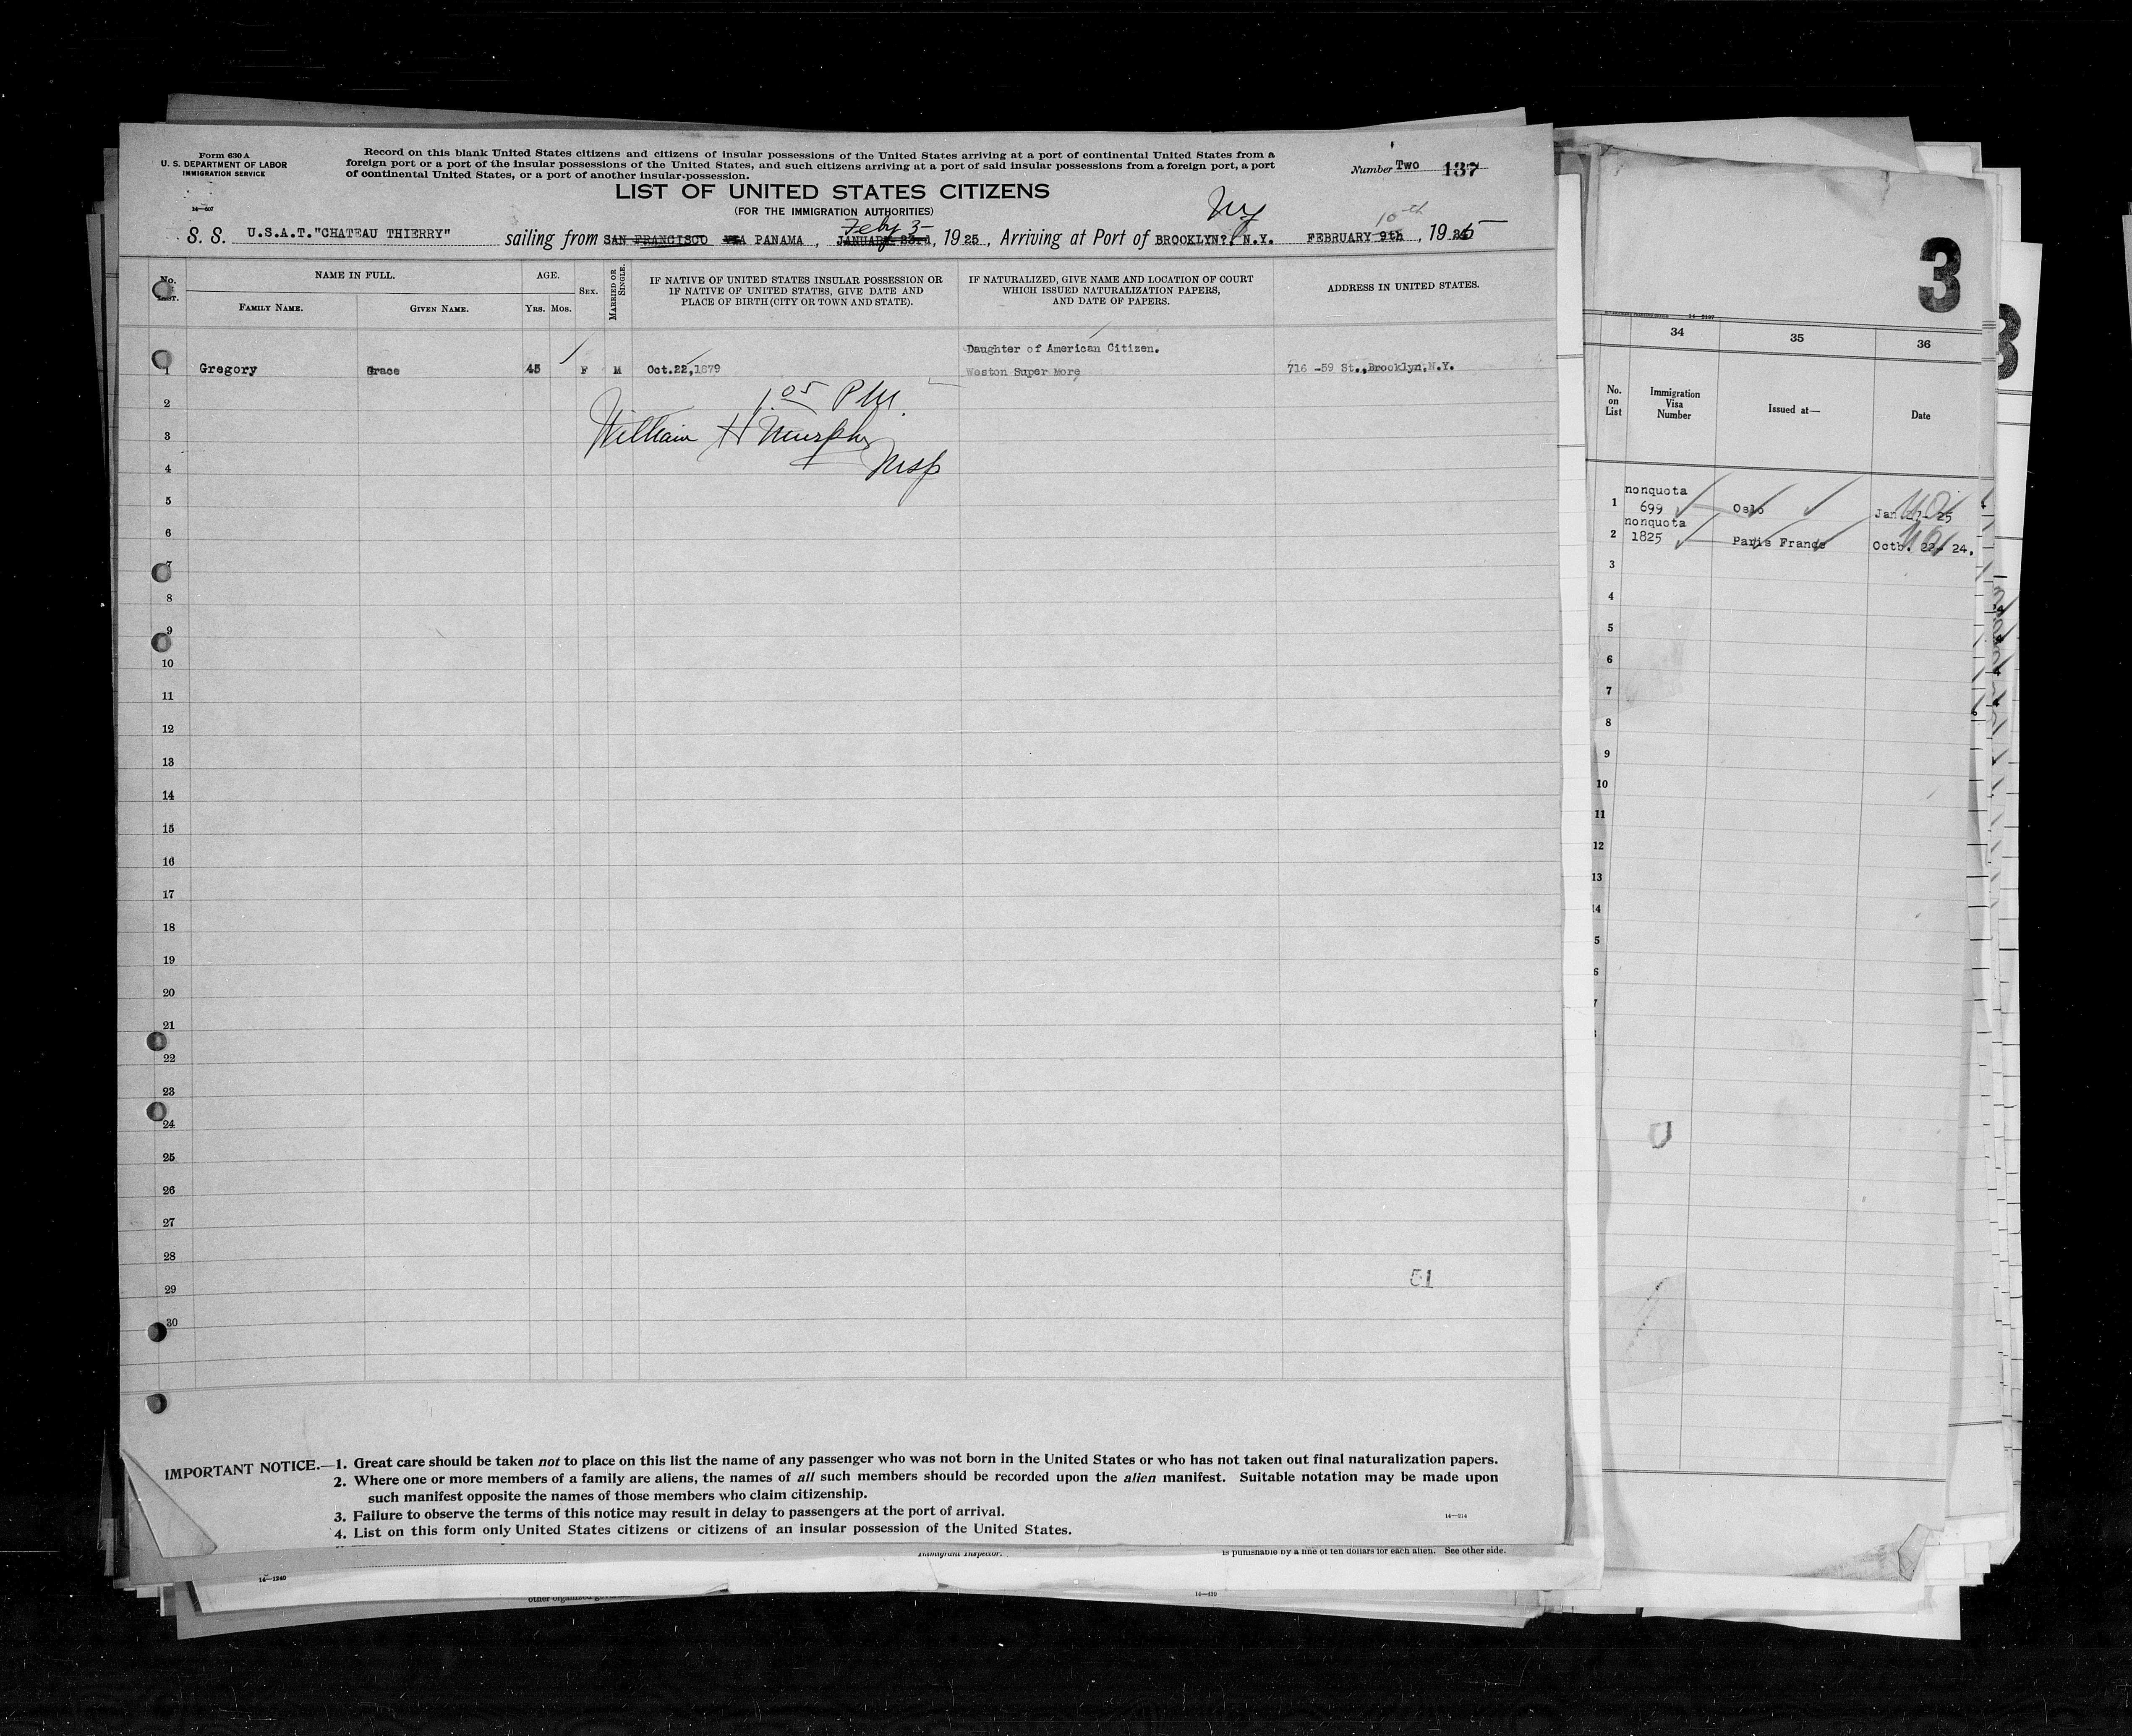 Form 630 A
U. S. DEPARTMENT OF LABOR
IMMIGRATION SERVICE
Record on this blank United States citizens and citizens of insular possessions of the United States arriving at a port of continental United States from a
foreign port or a port of the insular possessions of the United States, and such citizens arriving at a port of said insular possessions from a foreign port, a port
of continental United States, or a port of another insular possession.
Number Two 137
LIST OF UNITED STATES CITIZENS
(FOR THE IMMIGRATION AUTHORITIES)
Feby 3- NY 10th
S. S. U.S.A.T."CHATEAU THIERRY" sailing from SAN FRANCISCO VIA PANAMA, JANUARY 23rd, 1925, Arriving at Port of BROOKLYN, N.Y. FEBRUARY 9th, 1925
NAME IN FULL. AGE.
No. LIST. FAMILY NAME. GIVEN NAME. YRS. MOS. SEX. MARRIED OR SINGLE.
IF NATIVE OF UNITED STATES INSULAR POSSESSION OR
IF NATIVE OF UNITED STATES, GIVE DATE AND
PLACE OF BIRTH (CITY OR TOWN AND STATE).
IF NATURALIZED, GIVE NAME AND LOCATION OF COURT
WHICH ISSUED NATURALIZATION PAPERS,
AND DATE OF PAPERS.
ADDRESS IN UNITED STATES.
Daughter of American Citizen.
1 Gregory Grace 45 F M Oct.22,1879 Weston Super More 716 -59 St., Brooklyn, N.Y.
2 1.05 PM.
3 William H Murphy
4
5
6
7
8
9
10
11
12
13
14
15
16
17
18
19
20
21
22
23
24
25
26
27
28
29
30
51
IMPORTANT NOTICE.—1. Great care should be taken not to place on this list the name of any passenger who was not born in the United States or who has not taken out final naturalization papers.
2. Where one or more members of a family are aliens, the names of all such members should be recorded upon the alien manifest. Suitable notation may be made upon
such manifest opposite the names of those members who claim citizenship.
3. Failure to observe the terms of this notice may result in delay to passengers at the port of arrival.
4. List on this form only United States citizens or citizens of an insular possession of the United States.
14—214
Immigrant Inspector.
is punishable by a fine of ten dollars for each alien. See other side.
14—1240
14—430
3
34 35 36
No.
on
List
Immigration
Visa
Number
Issued at—
Date
nonquota
1 699 Oslo Jan.27-25
nonquota
2 1825 Paris France Octb. 22- 24,
3
4
5
6
7
8
9
10
11
12
13
14